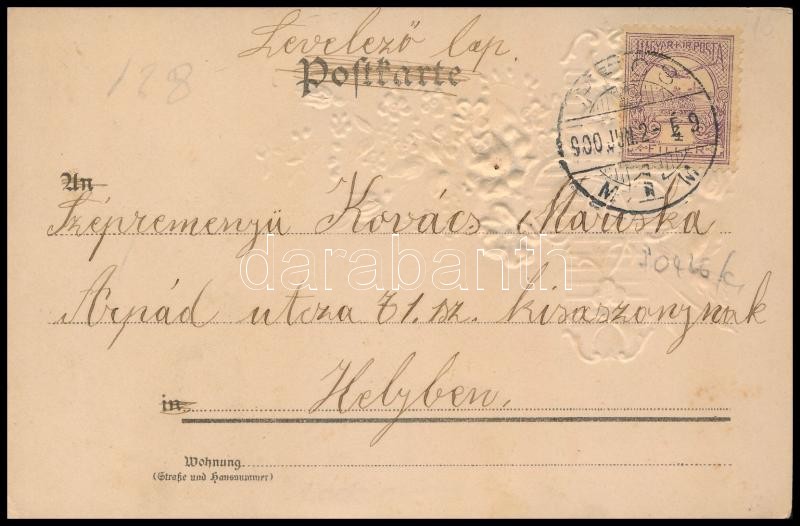 Levelező lap.
Postkarte
128
MAGYAR KIR. POSTA
900 JUN. 2
FILLÉR
An
Szépreményü Kovács Mariska
darabanth
Árpád utcza 71. sz. kisaszonynak
in
Helyben.
Wohnung
(Straße und Hausnummer)